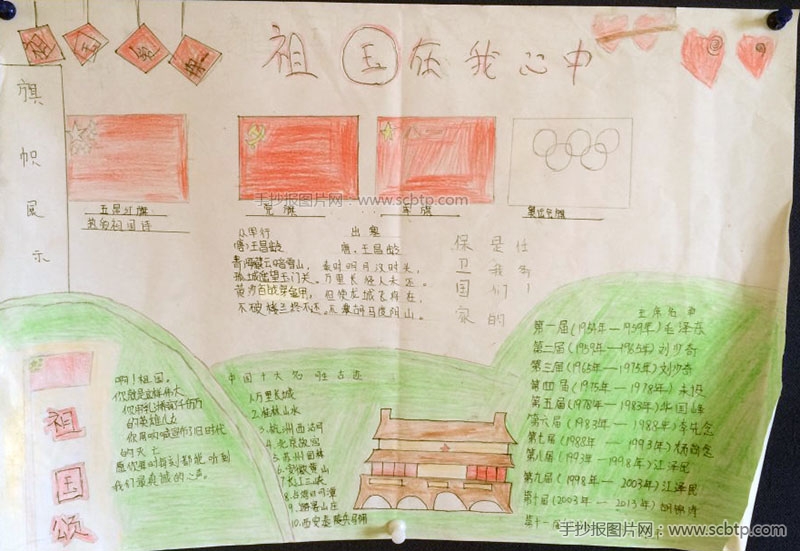 祖国在我心中
旗帜展示
五星红旗
党旗
军旗
奥运会旗
手抄报图片网：www.scbtp.com
热爱祖国诗
从军行
唐、王昌龄
青海长云暗雪山，
孤城遥望玉门关。
黄沙百战穿金甲，
不破楼兰终不还。
出塞
唐、王昌龄
秦时明月汉时关，
万里长征人未还。
但使龙城飞将在，
不教胡马度阴山。
保卫国家
是我们的
祖国颂
啊！祖国。
你就是这样伟大
的英雄儿女
的灭亡
愿你每时每刻都能听到
我们最真诚的心声。
中国十大名胜古迹
1.万里长城
2.桂林山水
3.杭州西湖
4.北京故宫
5.苏州园林
6.安徽黄山
7.长江三峡
8.台湾日月潭
9.避暑山庄
10.西安秦陵兵马俑
主席名单
第一届(1954年—1959年)毛泽东
第二届(1959年—1965年)刘少奇
第三届(1965年—1975年)刘少奇
第四届(1975年—1978年)未设
第五届(1978年—1983年)华国锋
第六届(1983年—1988年)李先念
第七届(1988年—1993年)杨尚昆
第八届(1993年—1998年)江泽民
第九届(1998年—2003年)江泽民
第十届(2003年—2013年)胡锦涛
第十一届
手抄报图片网：www.scbtp.com